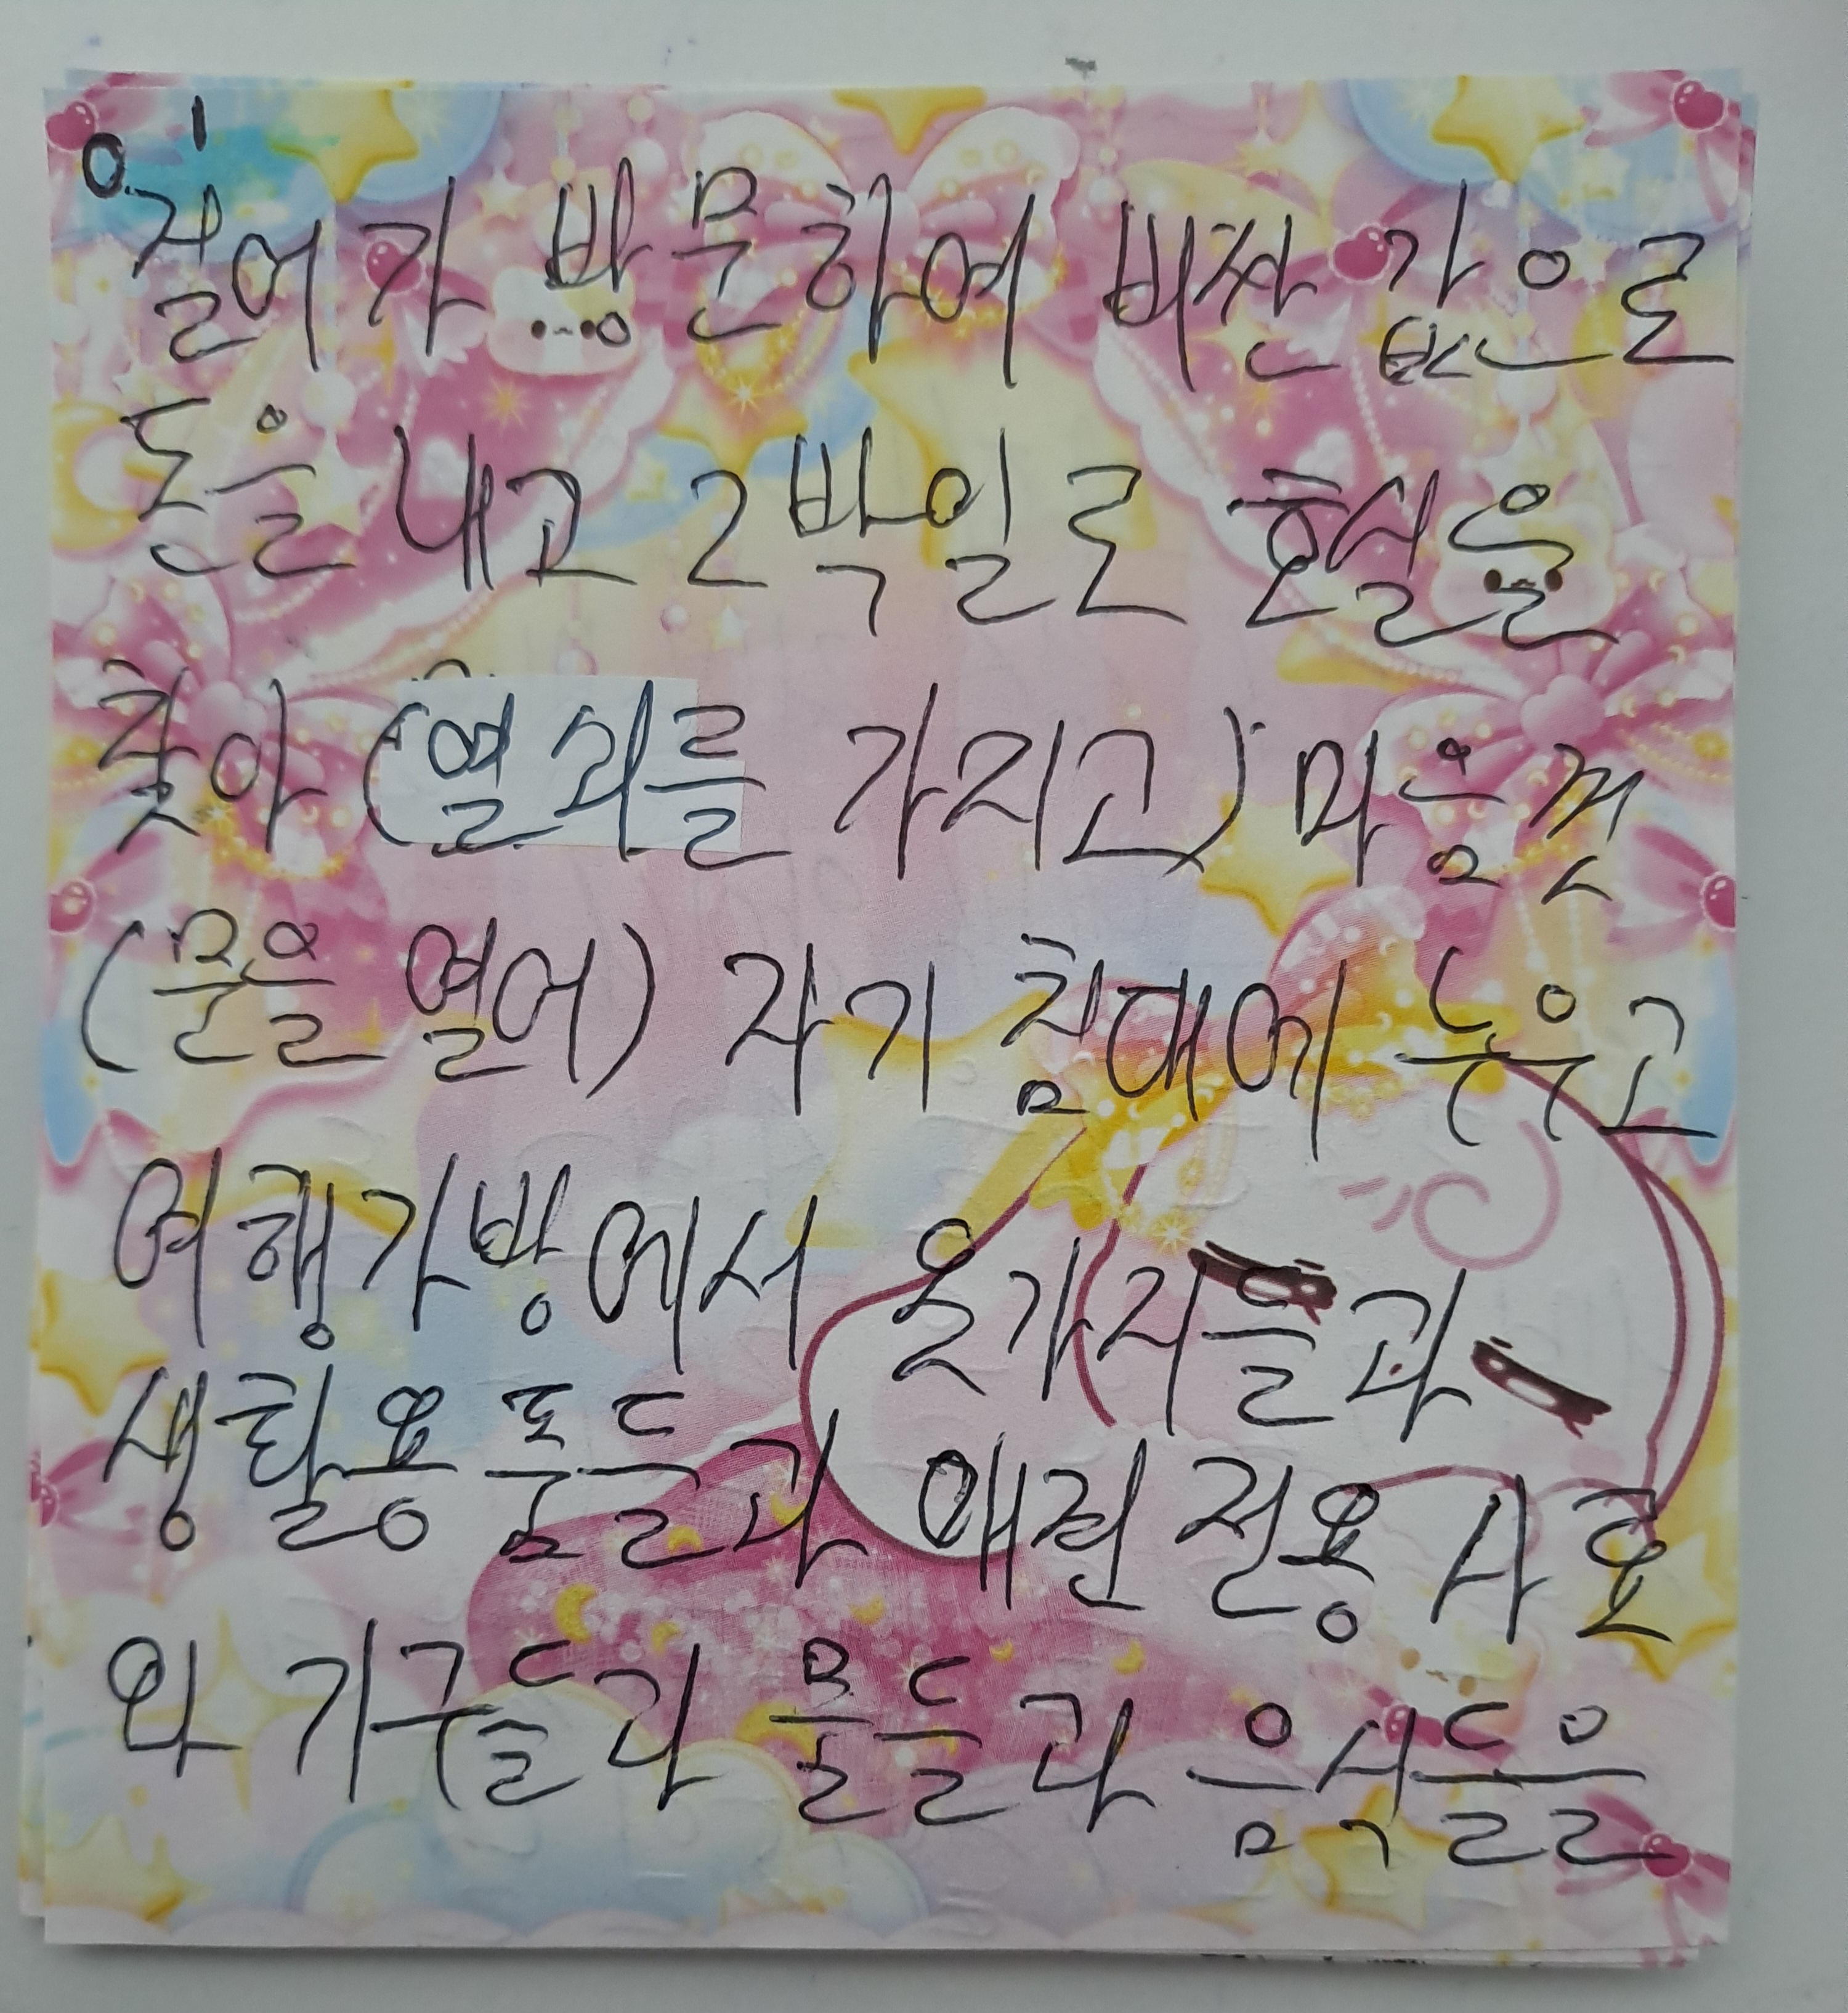 0.1
걸어가 방문하여 비싼 값으로
돈을 내고 2박일로 호실을
찾아 (열쇠를 가지고) 마음껏
(문을 열어) 자기 침대에 누우고
여행가방에서 옷가지들과
생활용품들과 애견 전용 사료
와 기구들과 물들과 음식들을